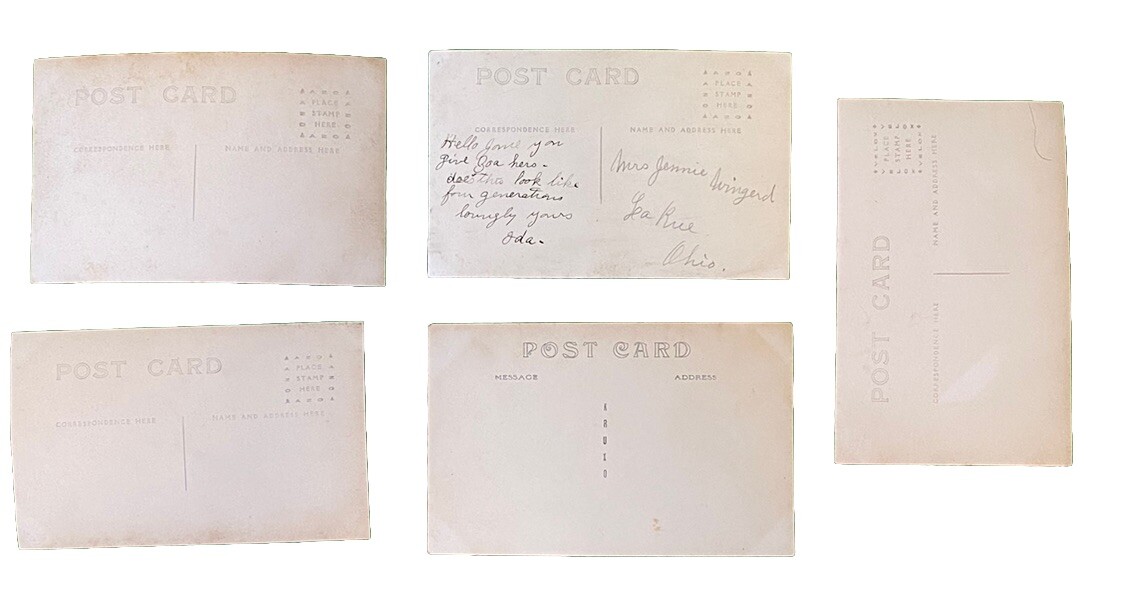 POST CARD
PLACE
STAMP
HERE
CORRESPONDENCE HERE
NAME AND ADDRESS HERE
POST CARD
PLACE
STAMP
HERE
CORRESPONDENCE HERE
NAME AND ADDRESS HERE
Hello you
give hers-
does this look like
four generations
lovingly yours
Oda-
Mrs Jennie Wingerd
La Rue
Ohio.
VELOX
PLACE
STAMP
HERE
VELOX
POST CARD
CORRESPONDENCE HERE
NAME AND ADDRESS HERE
POST CARD
PLACE
STAMP
HERE
CORRESPONDENCE HERE
NAME AND ADDRESS HERE
POST CARD
MESSAGE
ADDRESS
KRUXO